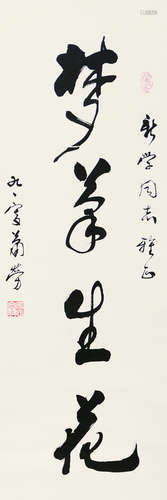 新学同志雅正
梦笔生花
九八叟萧劳